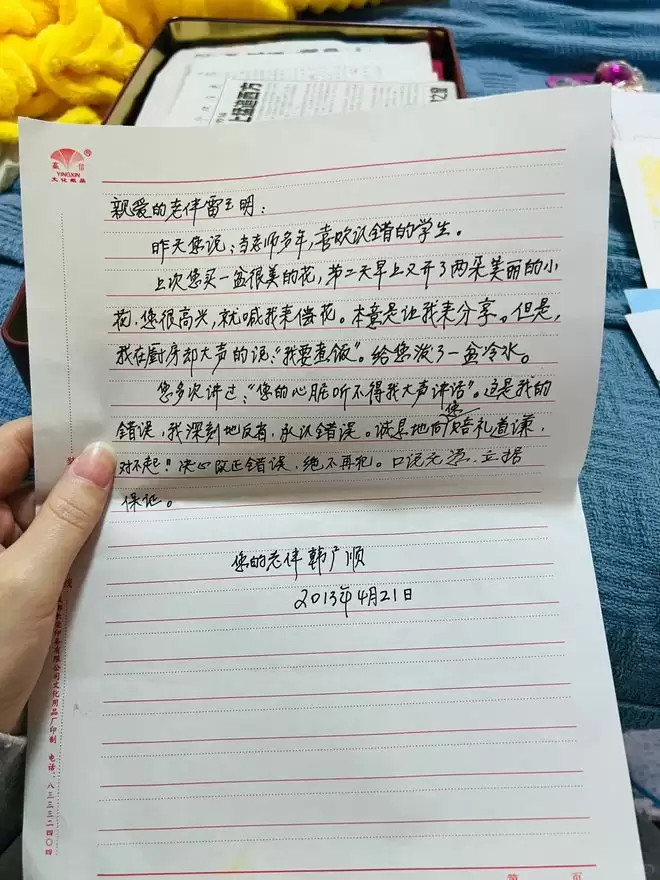 上经道西方
赢信
®
YINGXIN
文化用品
亲爱的老伴雷玉明：
昨天您说：当老师多年，喜欢认错的学生。
上次您买一盆很美的花，第二天早上又开了两朵美丽的小
花，您很高兴，就喊我来偿花。本意是让我来分享。但是，
我在厨房却大声的说：“我要煮饭”。给您泼了一盆冷水。
您多次讲过：“您的心脏听不得我大声讲话”。这是我的
错误，我深刻地反省，承认错误。诚恳地向您赔礼道谦，
对不起！决心改正错误，绝不再犯。口说无凭，立据
保证。
您的老伴韩广顺
2013年4月21日
印务有限公司文化用品厂印制 电话：八三三二四〇四
第 页